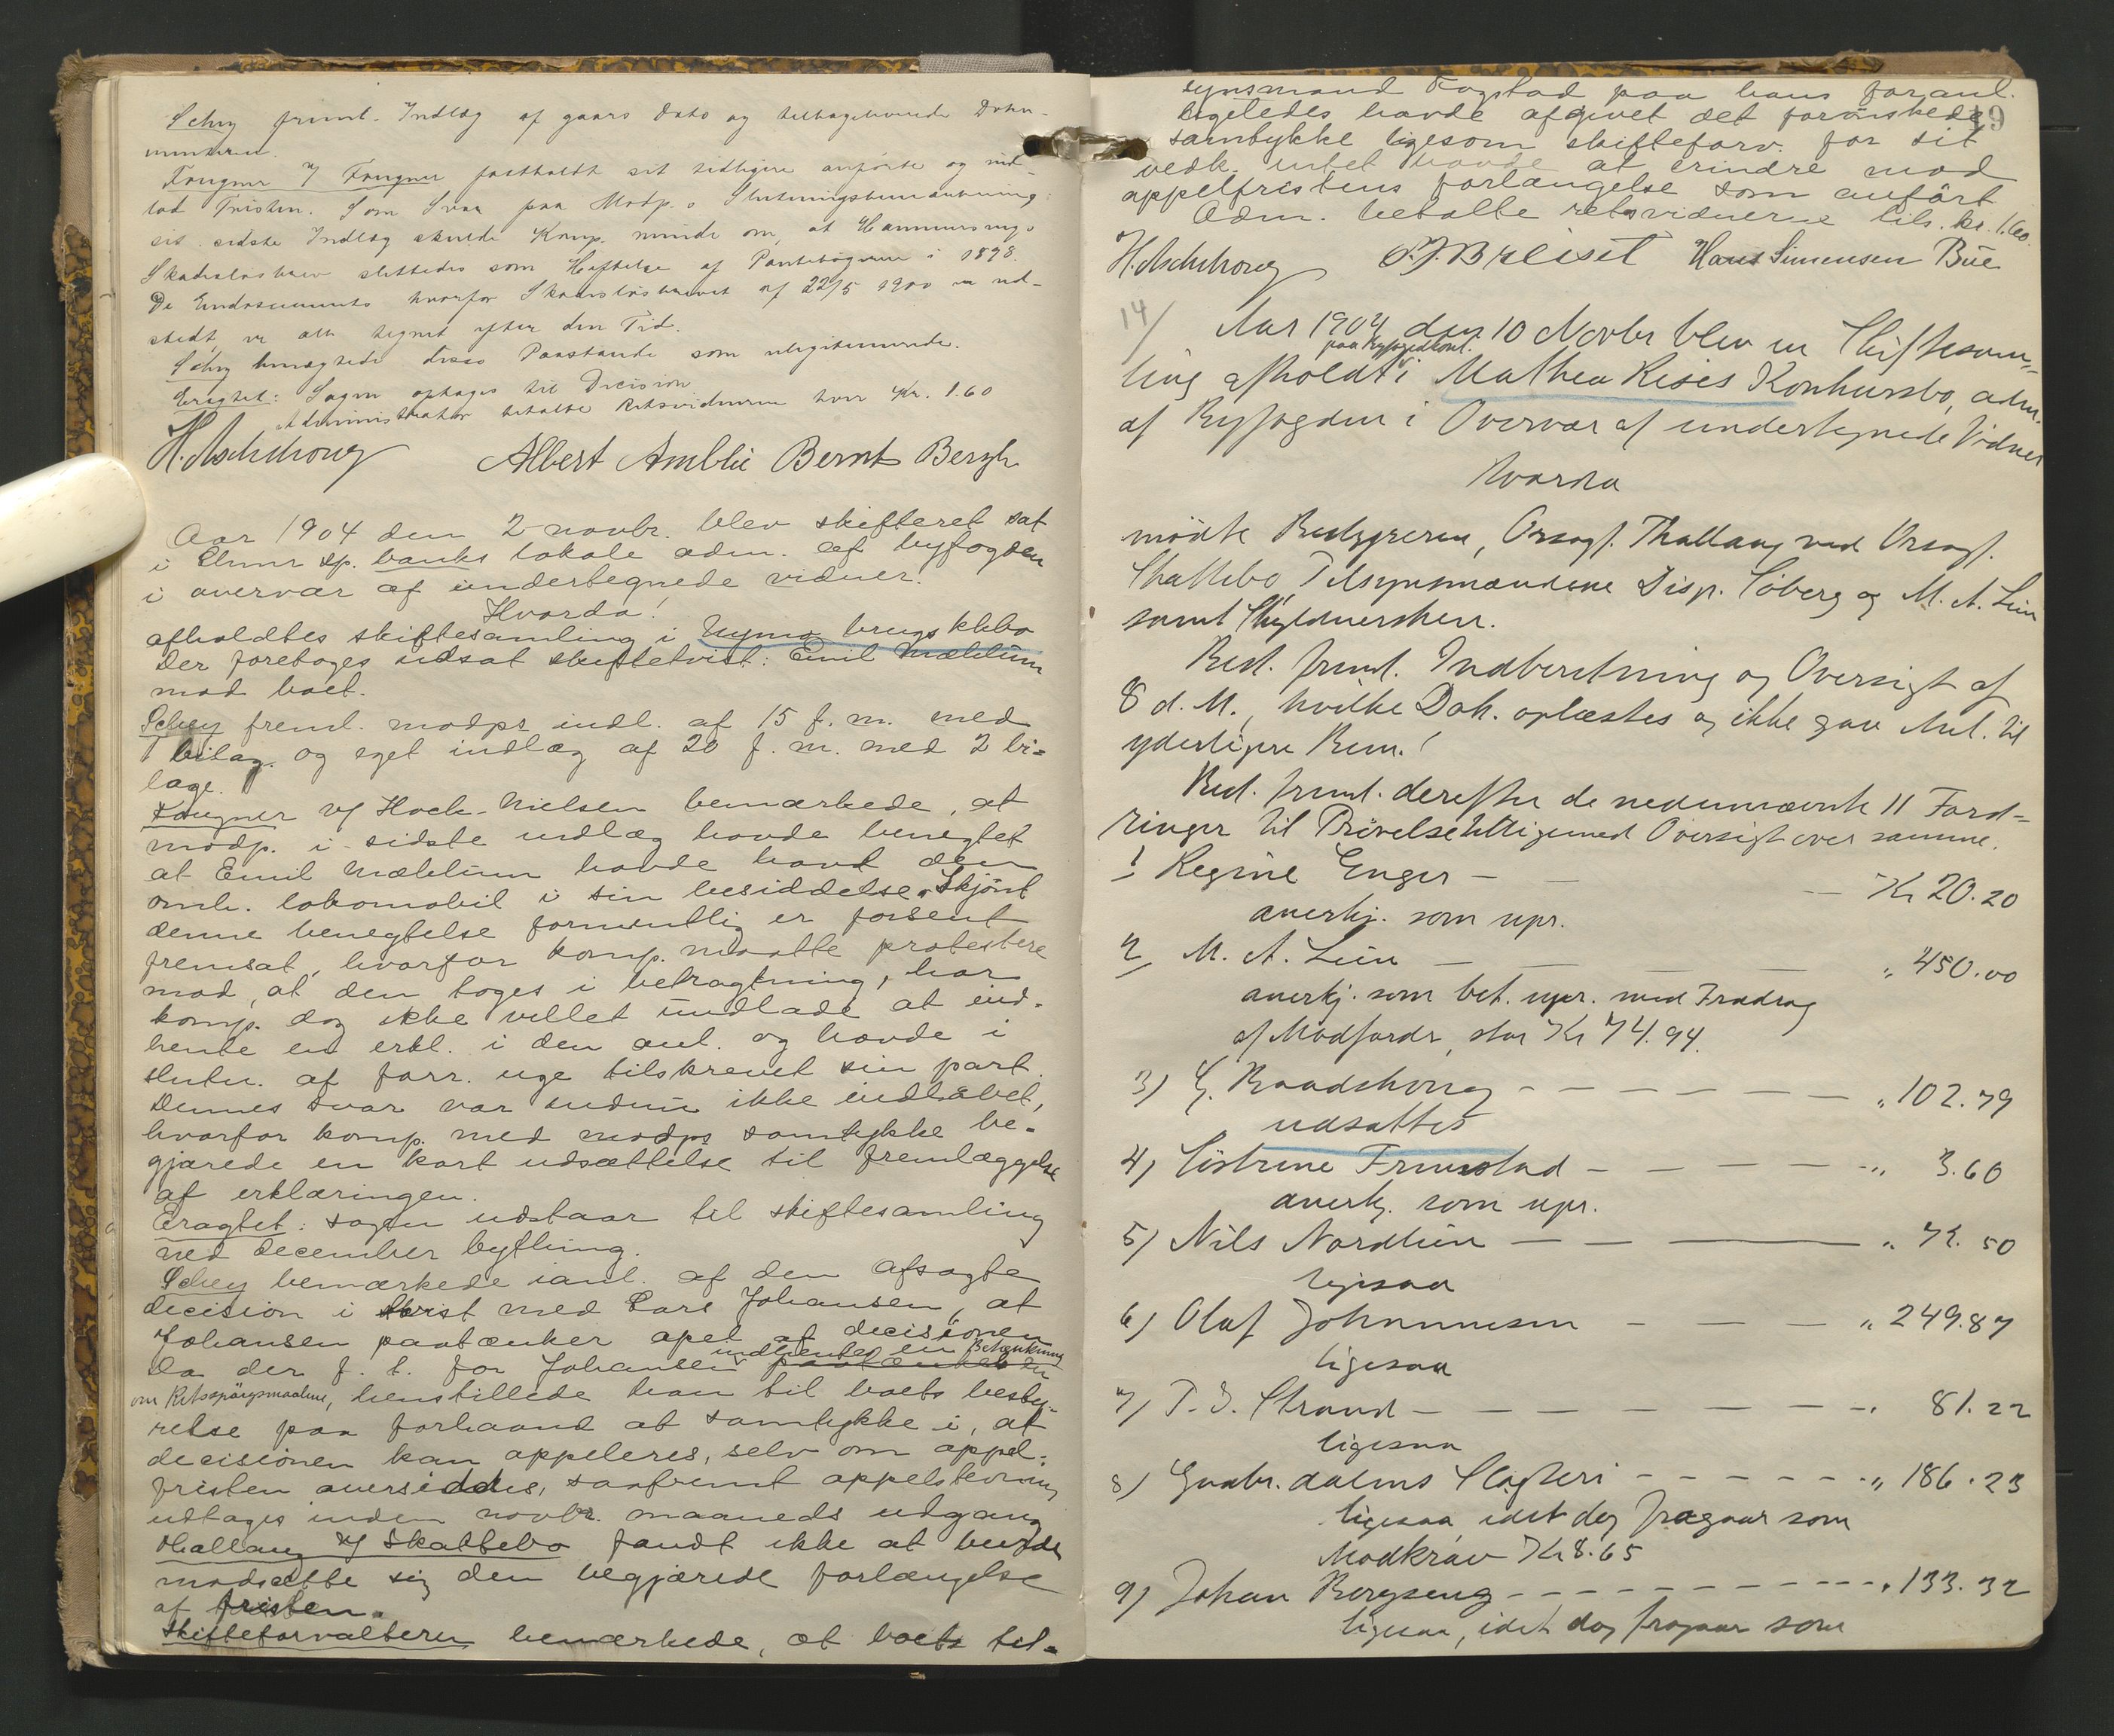 Schey freml. Indlæg af gaars Dato og tilbageleverede Doku-
menterne.
Fougner v/ Fougner fastholdt sit tidligere anførte og ind-
lod Tvisten. Som Svar paa Modp.s Slutningsbemærkning i
sit sidste Indlæg skulde Komp. minde om, at Hammersengs
Skadesløsbrev slettedes som Heftelse af Pantebøgerne i 1898.
De Endossements hvorfor Skadesløsbrevet af 22/5 1900 er ud-
stedt, er alle tegnet efter den Tid.
Schey benægtede disse Paastande som ulegitimerede.
Eragtet: Sagen optages til Decision
Administrator betalte Retsvidnerne hver Kr. 1.60
H. Aschehoug Albert Amblie Bernt Bergh
Aar 1904 den 2 novbr. blev skifteret sat
i Elvnr sp. banks lokale adm. af byfogden
i overvær af undertegnede vidner.
Hvorda!
afholdtes skiftesamling i Nymo brugs kkbo
Der foretoges udsat skiftetvist: Emil Mæhlum
mod boet.
Schey freml. modps indl. af 15 f. m. med
1 bilag. og eget indlæg af 20 f. m. med 2 bi=
lage.
Fougner v/ Hoch-Nielsen bemærkede, at
modp. i sidste indlæg havde benegtet
at Emil Mæhlum havde havt den
omh. lokomobil i sin besiddelse. Skjønt
denne benegtelse formentlig er forsent
fremsat, hvorfor komp. maatte protestere
mod, at den toges i betragtning, har
komp. dog ikke villet undlade at ind-
hente en erkl. i den anl. og havde i
slutn. af forr. uge tilskrevet sin part.
Dennes svar var endnu ikke indløbet,
hvorfor komp. med modps samtykke be-
gjærede en kort udsættelse til fremlæggelse
af erklæringen.
Eragtet: sagen udstaar til skiftesamling
ved december bything.
Schey bemærkede ianl. af den afsagte
decision i tvist med Lars Johansen, at
Johansen paatænker apel af decisionen
Da der f. t. for Johansen indhentes en Betænkning
om Retsspørgsmaalene, henstillede han til boets besty-
relse paa forhaand at samtykke i, at
decisionen kan appeleres, selv om appel-
fristen oversiddes, saafremt appelstevning
udtages inden novbr. maaneds udgang
Thallaug v/ Skattebo fandt ikke at burde
modsætte sig den begjærede forlængelse
af fristen.
Skifteforvalteren bemærkede, at boets til-
synsmand Fogstad paa hans foranl.
ligeledes havde afgivet det forønskede
samtykke ligesom skifteforv. for sit
vedk. intet havde at erindre mod
appelfristens forlængelse som anført
Adm. betalte retsvidnerne tils. kr. 1.60.
H. Aschehoug O. J. Breiset Hans Simensen Bue
19
14/ Aar 1904 den 10 Novbr blev en Skiftesam-
paa Byfogedkont.
ling afholdt i Mathea Rises Konkursbo, adm.
af Byfogden i Overvær af undertegnede Vidner
Hvorda
mødte Bestyreren, Orsagf. Thallaug ved Orsagf.
Skattebo, Tilsynsmændene Disp. Søberg og M. A. Lien
samt Skyldnersken.
Best. freml. Indberetning og Oversigt af
8 d. M., hvilke Dok. oplæstes og ikke gav Anl. til
yderligere Bem.
Best. freml. derefter de nedennævnte 11 Ford=
ringer til Prøvelse tilligemed Oversigt over samme.
1 Regine Enger — — — Kr 20.20
anerkj. som upr.
2 M. A. Lien — — — „ 450.00
anerkj. som bet. upr. med Fradrag
af Modfordr, stor Kr 74.94.
3) G. Raadshoug — — — „ 102.79
udsattes
4) Søstrene Frenstad — — — „ 3.60
anerkj. som upr.
5) Nils Nordlien — — — „ 72.50
ligesaa
6) Oluf Johannesen — — — „ 249.87
ligesaa
7) P. J. Strand — — — „ 81.22
ligesaa
8) Gudbr.dalens Slagteri — — — „ 186.23
ligesaa, idet dog fragaar som
Modkrav Kr 8.65
9) Johan Bergseng — — — „ 133.32
ligesaa, idet dog fragaar som